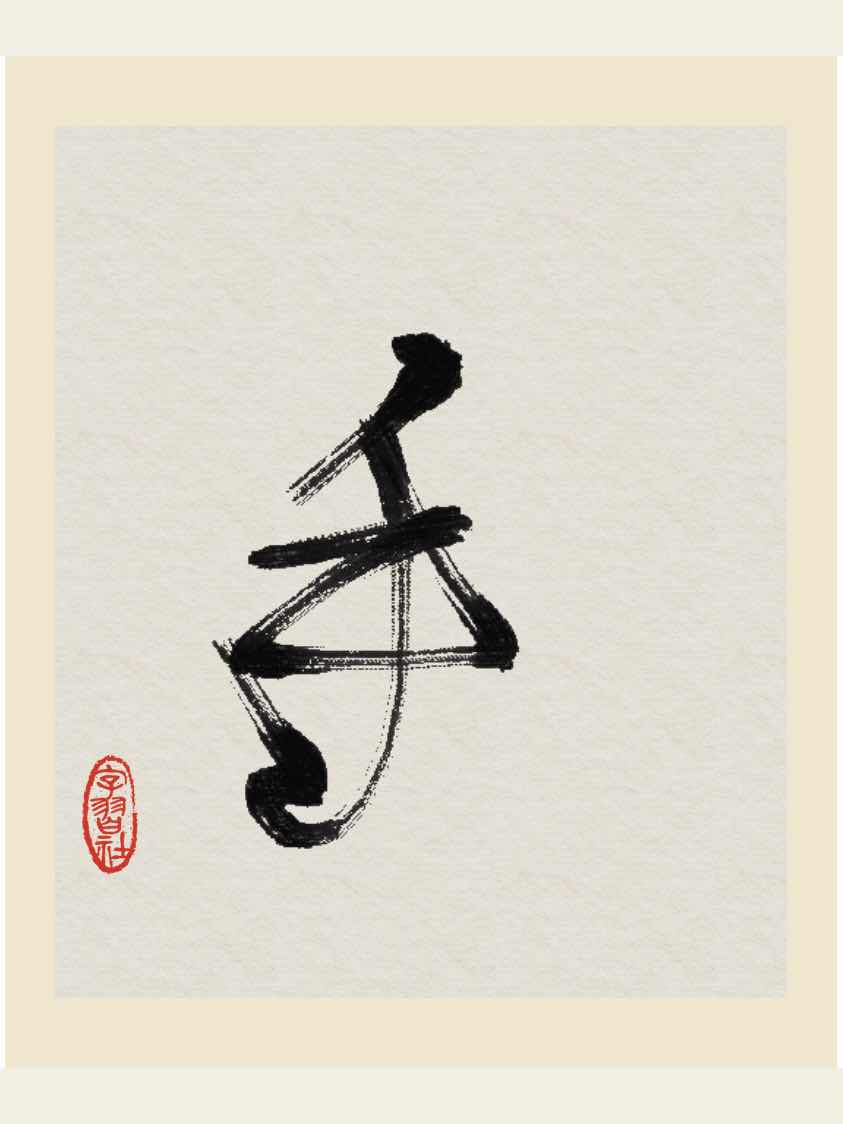 手
字習社